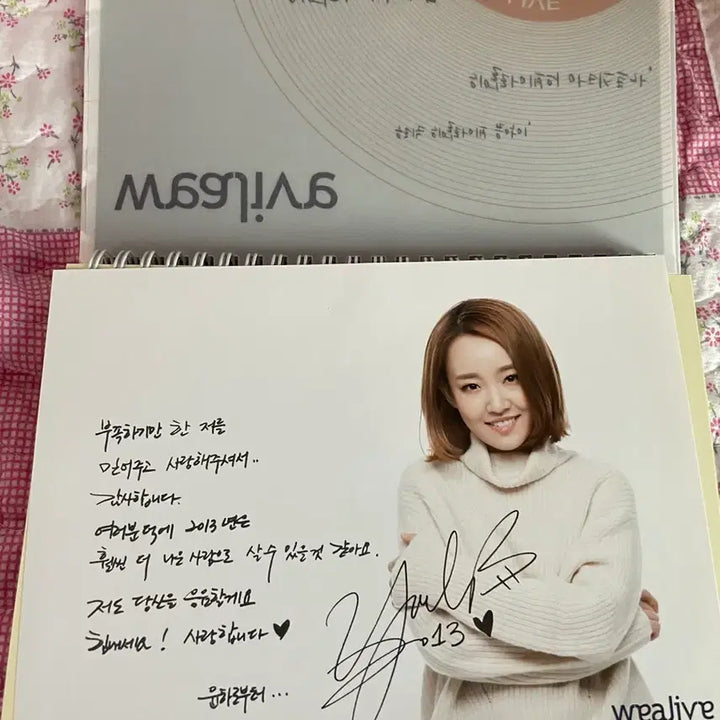 wealive
부족하기만 한 저를
믿어주고 사랑해주셔서..
감사합니다.
여러분 덕에 2013년은
훨씬 더 나은 사람으로 살 수 있을것 같아요.
저도 당신을 응원할게요
힘내세요! 사랑합니다 ♥
윤하로부터 ...
2013 ♥
wealive